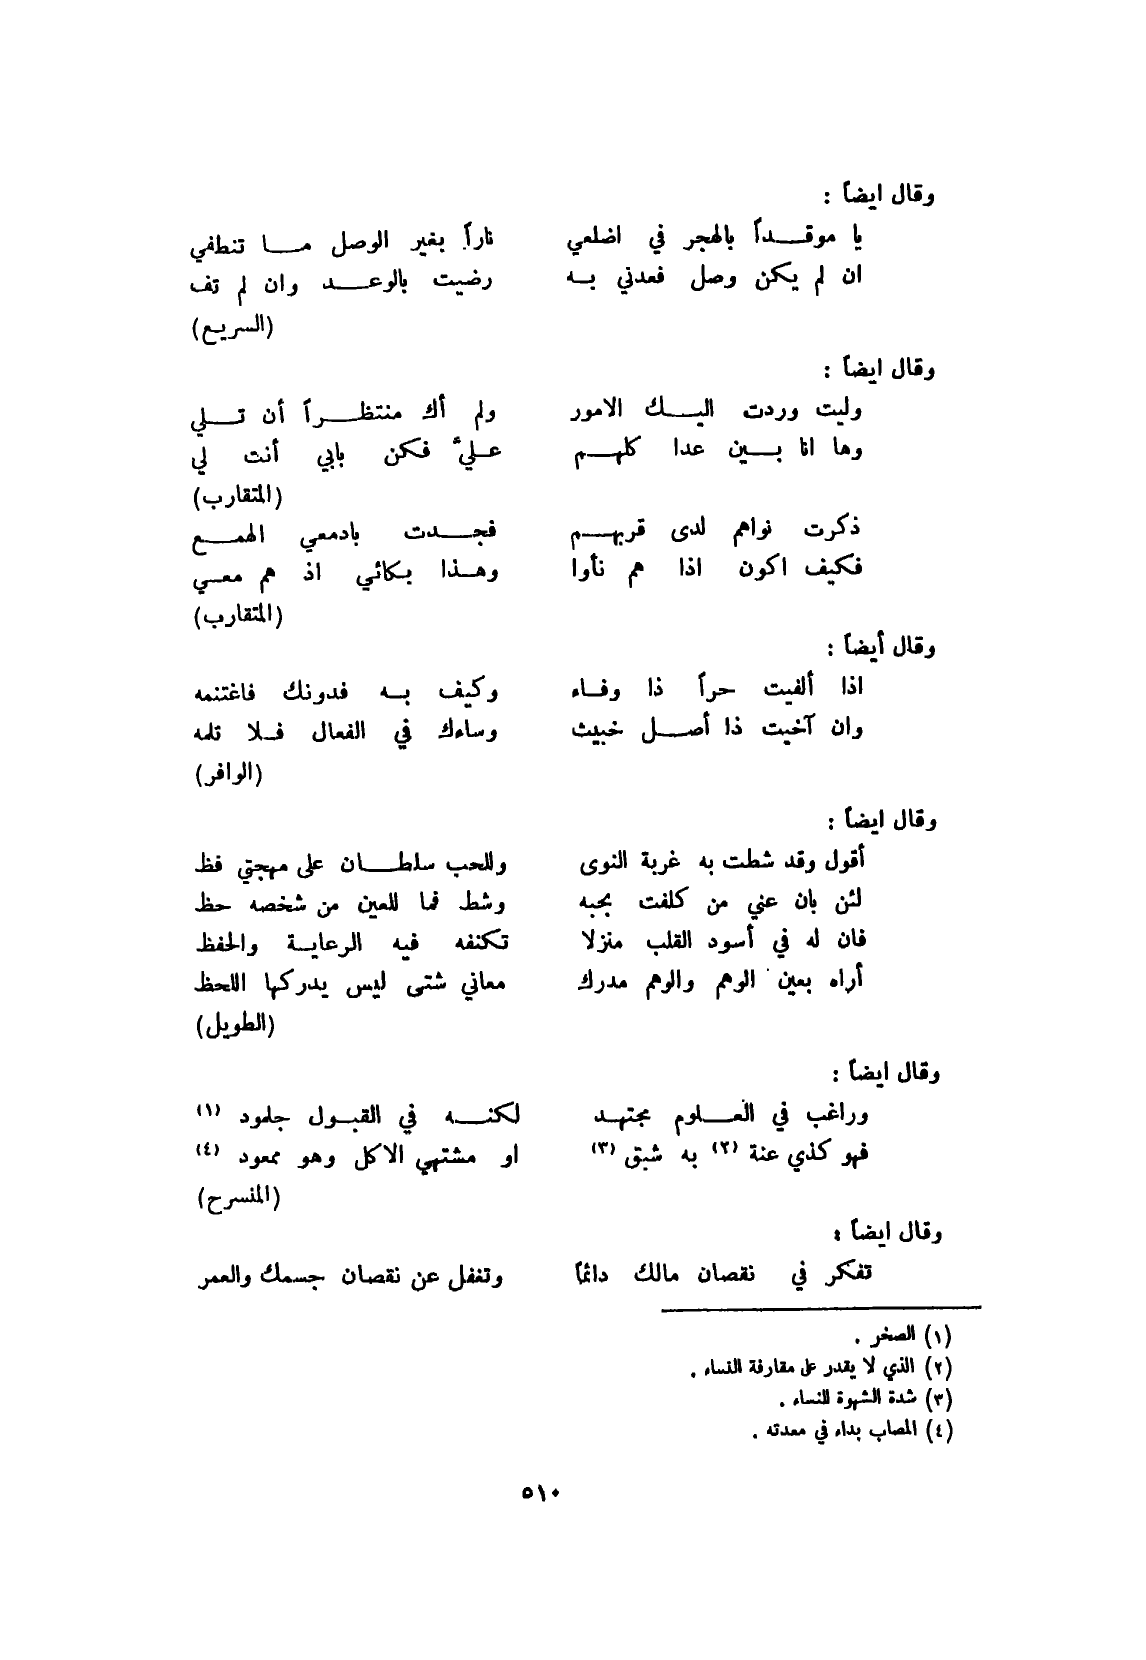 وقال ايضاً :
يا موقـــداً بالهجر في اضلعي ناراً بغير الوصل مـــا تنطفي
ان لم يكن وصل فعدني بـه رضيت بالوعـــد وان لم تف
(السريع)
وقال ايضاً :
وليت وردت اليـــك الامور ولم أك منتظـــراً أن تـــلي
وها انا بـــين عدا كلهـــم عـليَّ فكن بابي أنت لي
(المتقارب)
ذكرت نواهم لدى قربهـــم فجـــدت بادمعي الهمـــع
فكيف اكون اذا هم نأوا وهـذا بكائي اذ هم معـي
(المتقارب)
وقال أيضاً :
اذا ألفيت حراً ذا وفـاء وكيف بـه فدونك فاغتنمه
وان آخيت ذا أصـــل خبيث وساءك في الفعال فـلا تلمه
(الوافر)
وقال ايضاً :
أقول وقد شطت به غربة النوى وللحب سلطـــان على مهجتي فظ
لئن بان عني من كلفت بحبه وشط فما للعين من شخصه حظ
فان له في أسود القلب منزلا تكنفه فيه الرعايـة والحفظ
أراه بعين الوهم والوهم مدرك معاني شتى ليس يدركها اللحظ
(الطويل)
وقال ايضاً :
وراغب في العـــلوم مجتهـد لكنـــه في القبـول جلمود (١)
فهو كذي عنة (٢) به شبق (٣) او مشتهي الاكل وهو ممعود (٤)
(المنسرح)
وقال ايضاً :
تفكر في نقصان مالك دائماً وتغفل عن نقصان جسمك والعمر
(١) الصخر .
(٢) الذي لا يقدر على مقارفة النساء .
(٣) شدة الشهوة للنساء .
(٤) المصاب بداء في معدته .
٥١٠